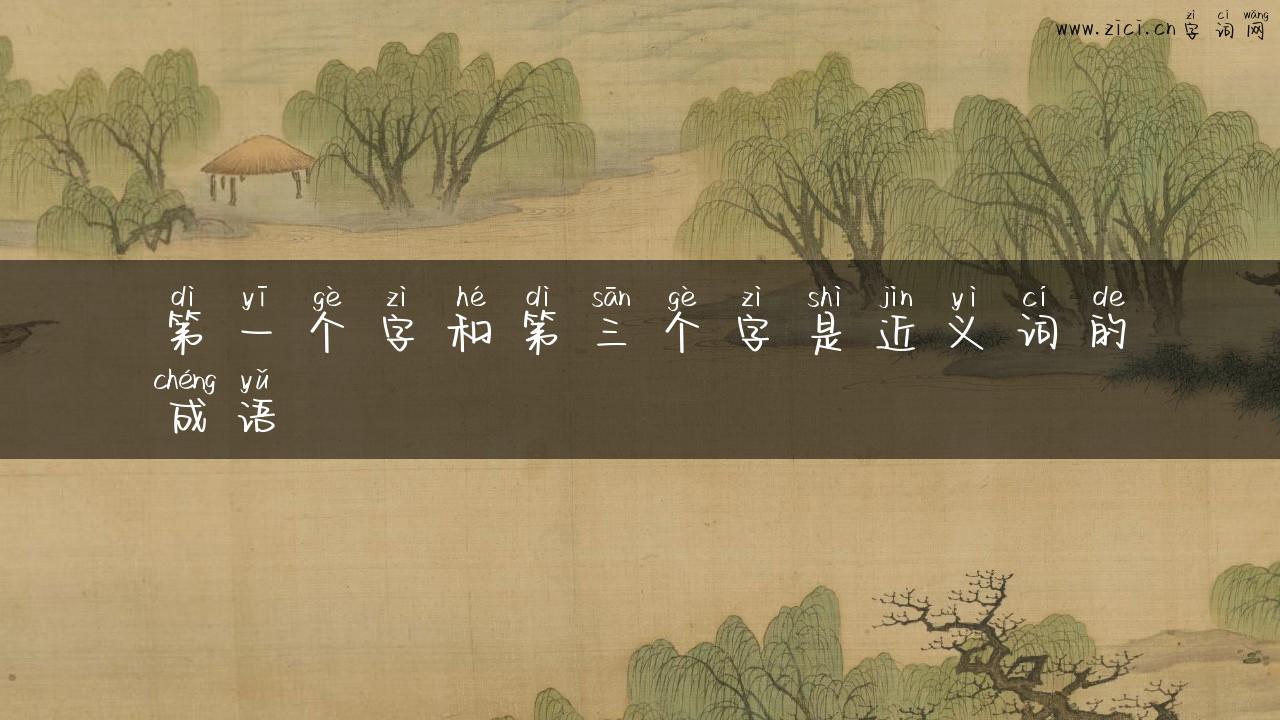 zì cí wǎng
www.zici.cn字词网
dì yī gè zì hé dì sān gè zì shì jìn yì cí de
第一个字和第三个字是近义词的
chéng yǔ
成语